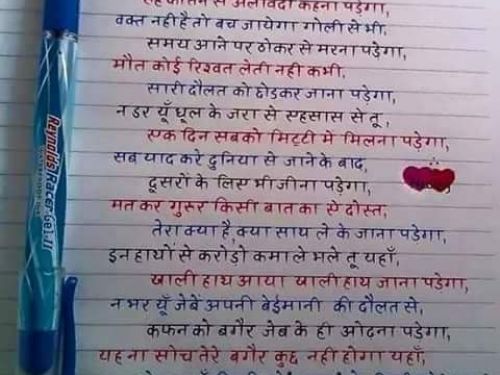 अलविदा कहना पड़ेगा,
वक्त नही है तो बच जायेगा गोली से भी,
समय आने पर ठोकर से मरना पड़ेगा,
मौत कोई रिश्वत लेती नही कभी,
सारी दौलत को छोडकर जाना पड़ेगा,
न डर यूँ धूल के जरा से एहसास से तू,
एक दिन सबको मिट्टी मे मिलना पड़ेगा,
सब याद करे दुनिया से जाने के बाद,
दूसरों के लिए भी जीना पड़ेगा,
मत कर गुरूर किसी बात का ऐ दोस्त,
तेरा क्या है, क्या साथ ले के जाना पड़ेगा,
इन हाथों से करोड़ो कमा ले भले तू यहाँ,
खाली हाथ आया खाली हाथ जाना पड़ेगा,
न भर यूँ जेबें अपनी बेईमानी की दौलत से,
कफन को बगैर जेब के ही ओढना पड़ेगा,
यह ना सोच तेरे बगैर कुछ नहीं होगा यहाँ,
Reynolds Racer Gel